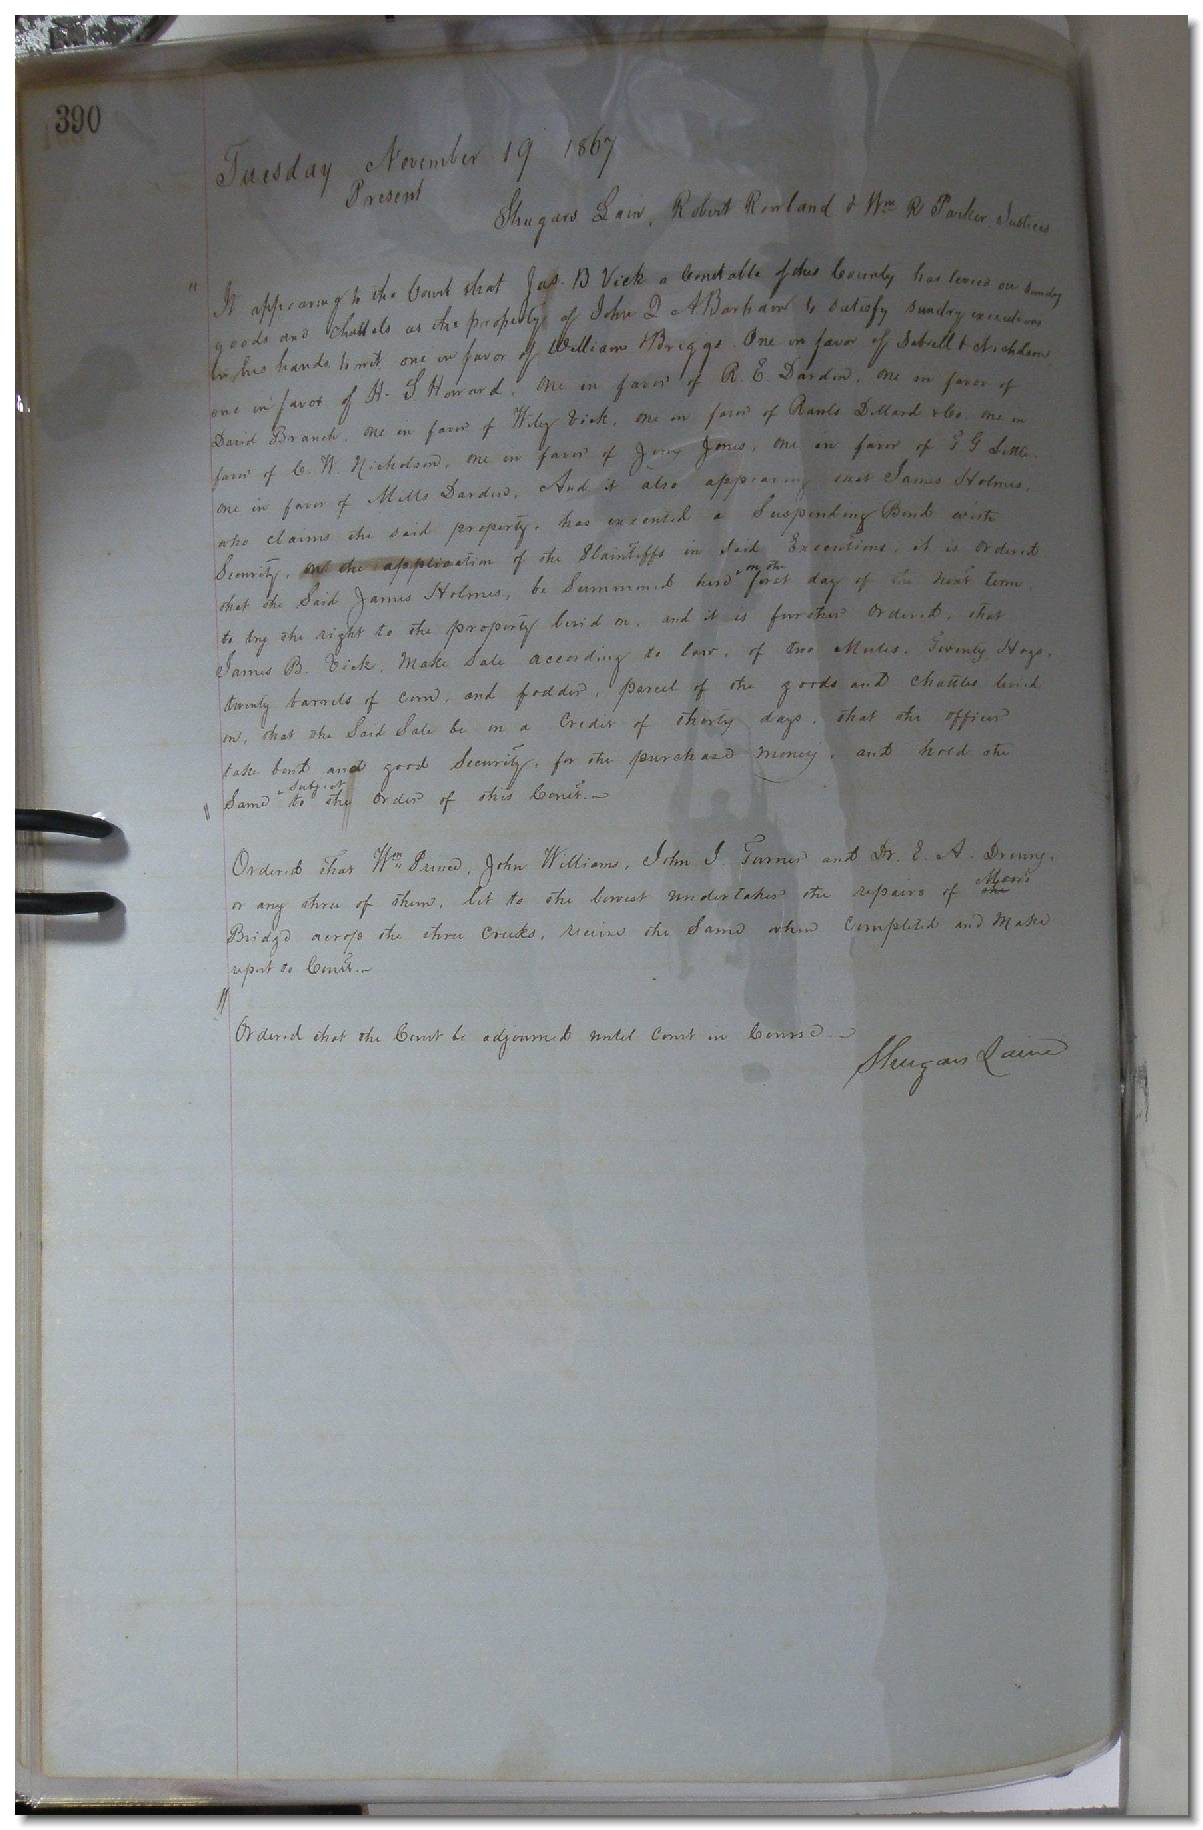 390
Tuesday November 19 1867
Present
Shugars Lain, Robert Rowland & Wm R Parker Justices
" It appearing to the Court that Jas. B Vick a Constable of this County has levied on sundry
goods and chattels as the property of John Q A Barham to satisfy sundry executions
in his hands to wit, one in favor of William Briggs. One in favor of &
one in favor of H. S Howard, one in favor of R. E. Darden, one in favor of
David Branch, one in favor of Wiley Vick, one in favor of Rawls Dillard & Co. one in
favor of C. W. Nicholson, one in favor of Jones, one in favor of Little.
one in favor of Mills Darden, And it also appearing that James Holmes,
who claims the said property, has executed a Suspending Bond with
Security, on the application of the Plaintiffs in Said Executions, it is ordered
that the Said James Holmes, be Summoned here on the first day of the next term,
to try the right to the property levied on, and it is further ordered, that
James B. Vick, Make Sale according to law, of two Mules, Twenty Hogs,
twenty barrels of corn, and fodder, parcel of the goods and chattles levied
on, that the Said Sale be on a Credit of thirty days, that the officer
take bond and good Security, for the purchase money, and hold the
Same subject to the order of this Court.—
"
Ordered that Wm , John Williams, John J. Turner and Dr. E. A. Drewry,
or any three of them, let to the lowest undertaker the repairs of the
Bridge across the three Creeks, receive the Same when Completed and Make
report to Court.—
"
Ordered that the Court be adjourned until Court in Course.—
Shugars Laine